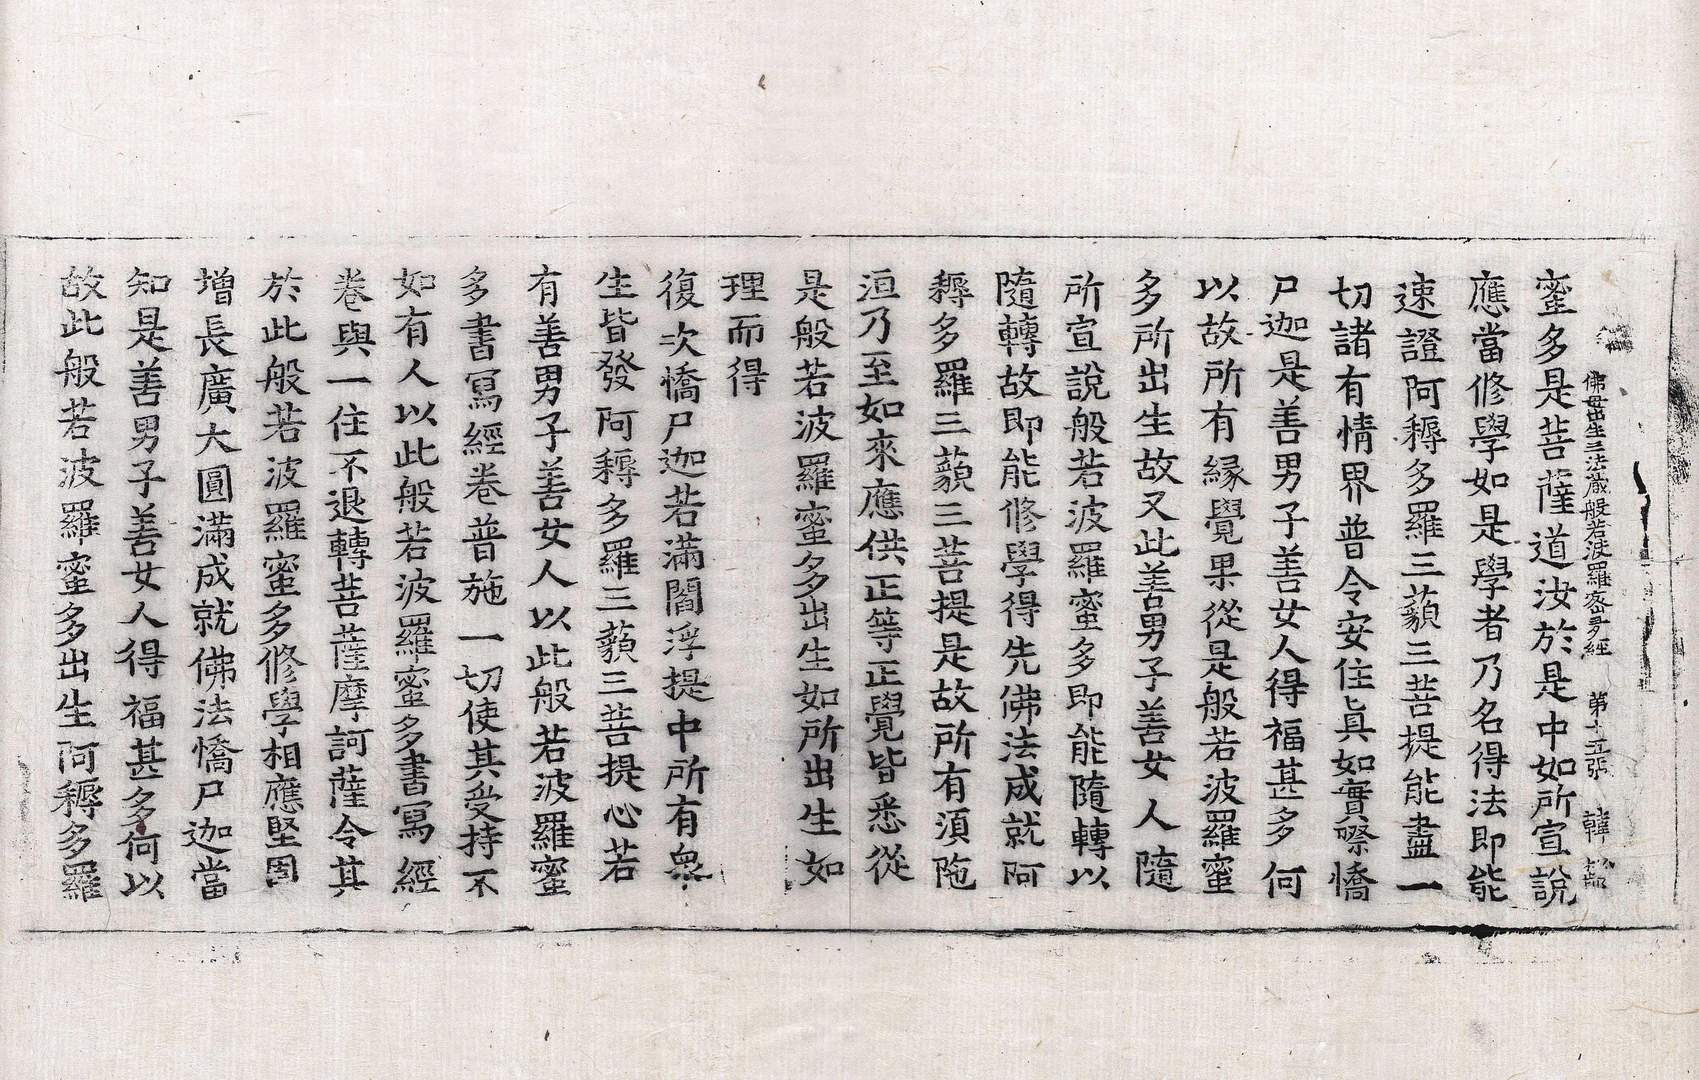 佛母出生三法藏般若波羅蜜多經 第十五張 韓
蜜多是菩薩道汝於是中如所宣說
應當修學如是學者乃名得法即能
速證阿耨多羅三藐三菩提能盡一
切諸有情界普令安住真如實際憍
尸迦是善男子善女人得福甚多何
以故所有緣覺果從是般若波羅蜜
多所出生故又此善男子善女人隨
所宣說般若波羅蜜多即能隨轉以
隨轉故即能修學得先佛法成就阿
耨多羅三藐三菩提是故所有須陁
洹乃至如來應供正等正覺皆悉從
是般若波羅蜜多出生如所出生如
理而得
復次憍尸迦若滿閻浮提中所有衆
生皆發阿耨多羅三藐三菩提心若
有善男子善女人以此般若波羅蜜
多書寫經卷普施一切使其受持不
如有人以此般若波羅蜜多書寫經
卷與一住不退轉菩薩摩訶薩令其
於此般若波羅蜜多修學相應堅固
增長廣大圓滿成就佛法憍尸迦當
知是善男子善女人得福甚多何以
故此般若波羅蜜多出生阿耨多羅